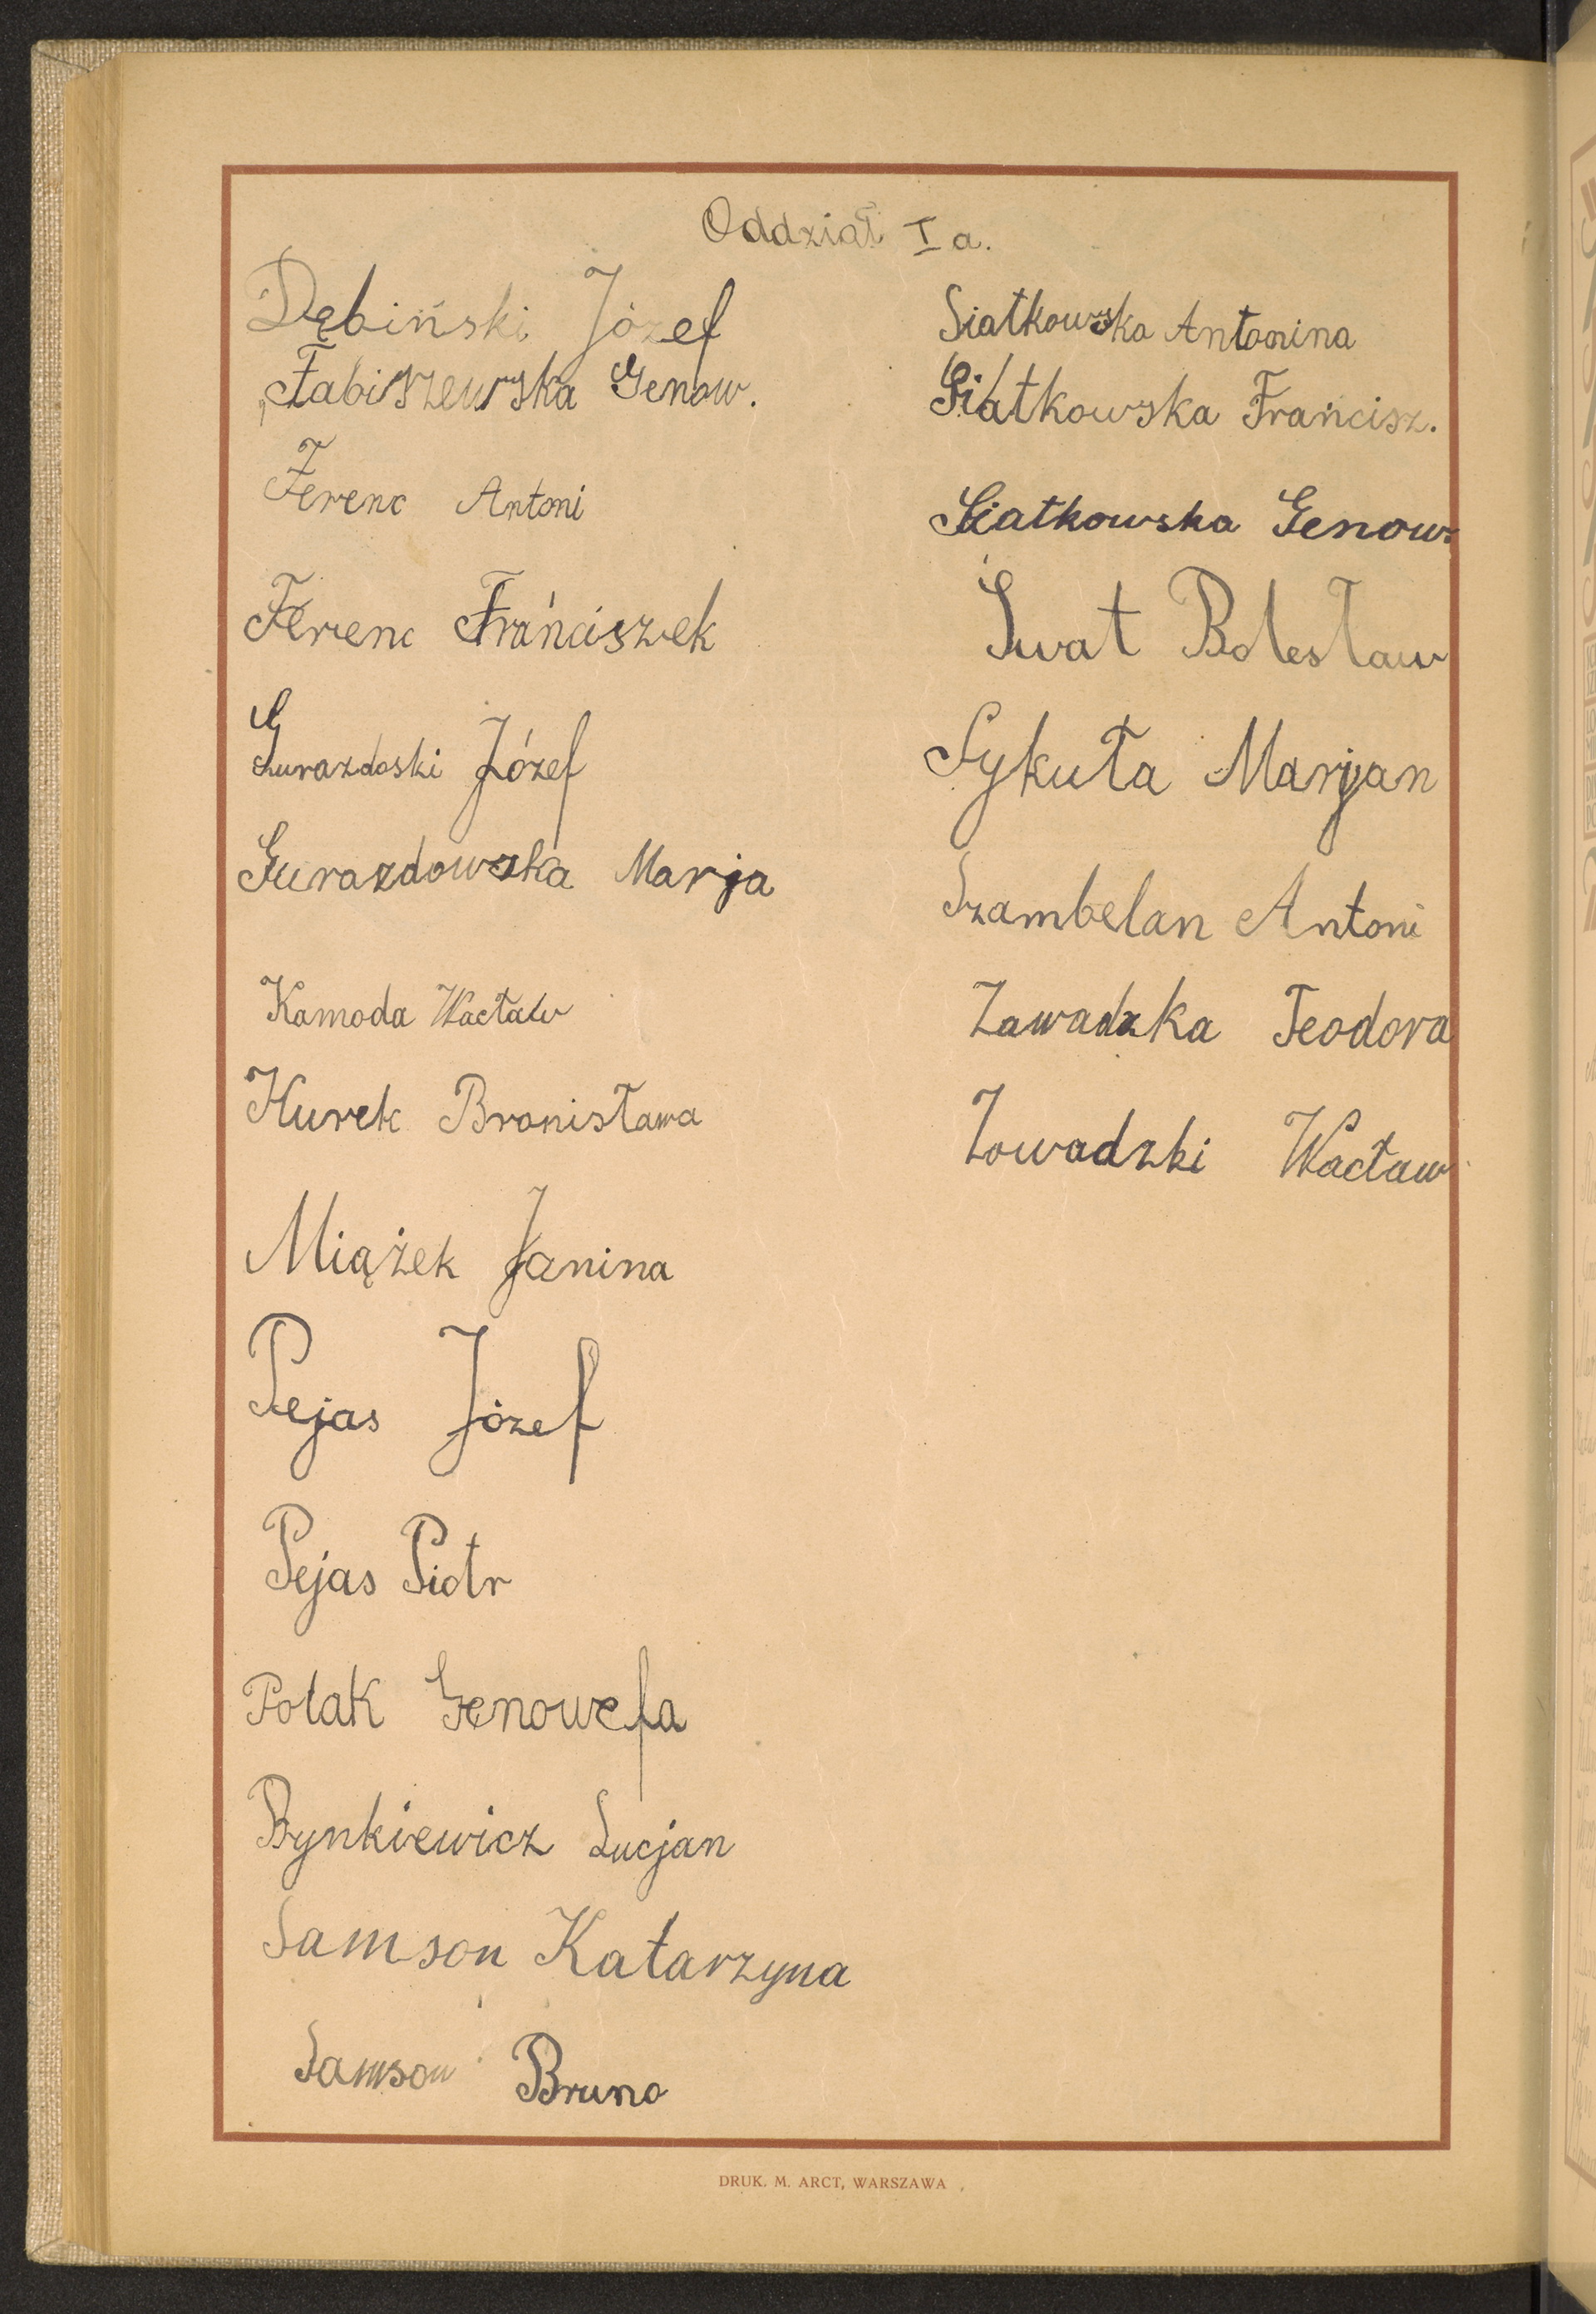 Oddział I a.
Dębiński Józef
Fabiszewska Genow.
Ferenc Antoni
Ferenc Frańciszek
Gurazdoski Józef
Gurazdowska Marja
Kamoda Wacław
Kurek Bronisława
Miążek Janina
Pejas Józef
Pejas Piotr
Polak Genowefa
Rynkiewicz Lucjan
Samson Katarzyna
Samson Bruno
Siatkowska Antonina
Siatkowska Francisz.
Siatkowska Genow
Swat Bolesław
Sykuła Marjan
Szambelan Antoni
Zawadzka Teodora
Zowadzki Wacław
DRUK. M. ARCT, WARSZAWA